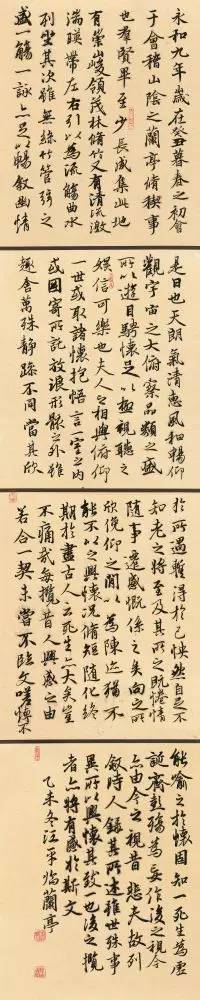 永和九年歲在癸丑暮春之初會
于會稽山陰之蘭亭脩稧事
也羣賢畢至少長咸集此地
有崇山峻領茂林脩竹又有清流激
湍暎帶左右引以為流觴曲水
列坐其次雖無絲竹管弦之
盛一觴一詠亦足以暢敘幽情
是日也天朗氣清惠風和暢仰
觀宇宙之大俯察品類之盛
所以遊目騁懷足以極視聽之
娛信可樂也夫人之相與俯仰
一世或取諸懷抱悟言一室之內
或因寄所託放浪形骸之外雖
趣舍萬殊靜躁不同當其欣
於所遇蹔得於己怏然自足不
知老之將至及其所之既惓情
隨事遷感慨係之矣向之所
欣俛仰之間以為陳迹猶不
能不以之興懷況脩短隨化終
期於盡古人云死生亦大矣豈
不痛哉每攬昔人興感之由
若合一契未嘗不臨文嗟悼不
能喻之於懷固知一死生為虛
誕齊彭殤為妄作後之視今
亦由今之視昔悲夫故列
敘時人錄其所述雖世殊事
異所以興懷其致一也後之攬
者亦將有感於斯文
乙未冬江平臨蘭亭